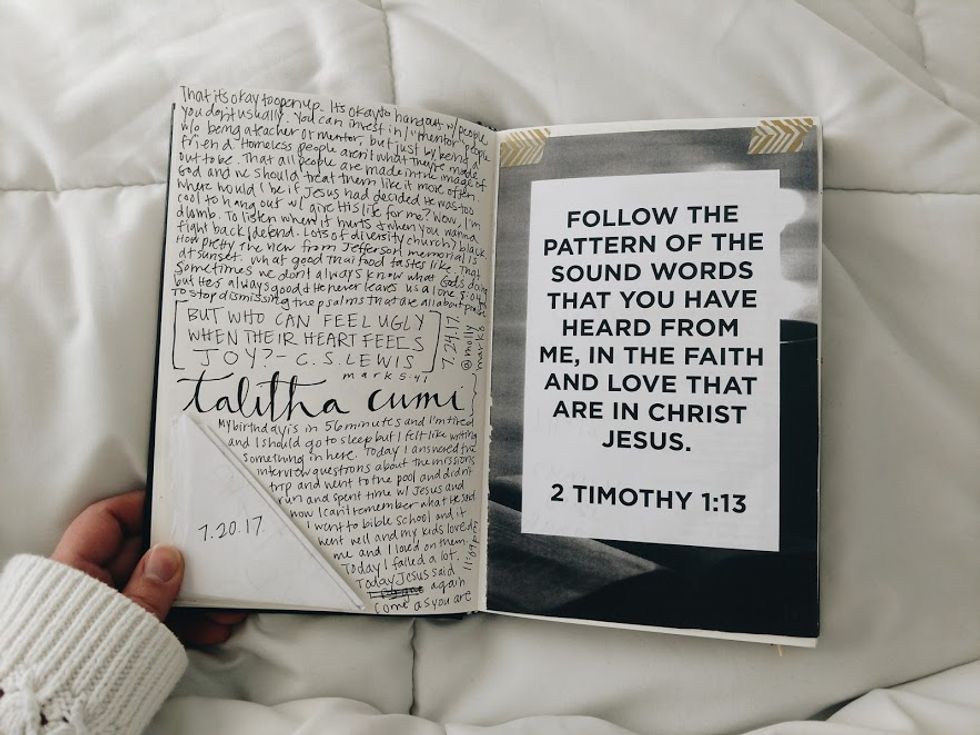 That its okay to open up. Its okay to hang out w/ people
you don't usually. You can invest in/"mentor" people
w/o being a teacher or mentor, but just by being a
friend. Homeless people aren't what they're made
out to be. That all people are made in the image of
God and we should treat them like it more often.
Where would I be if Jesus had decided He was too
cool to hang out w/ give His life for me? Wow, I'm
dumb. To listen when it hurts & when you wanna
fight back/defend. Lots of diversity (church) black
How pretty the view from Jefferson memorial is
at sunset. What good Thai food tastes like. That
sometimes we don't always know what God's doing
but He's always good & He never leaves us alone 5:04
To stop dismissing the psalms that are all about praise
BUT WHO CAN FEEL UGLY
WHEN THEIR HEART FEELS
JOY? - C.S. LEWIS
7.24.17.
@molly
mark 8
mark 5:41
talitha cumi
My birthday is in 56 minutes and I'm tired
and I should go to sleep but I felt like writing
something in here. Today I answered the
interview questions about the missions
trip and went to the pool and didn't
run and spent time w/ Jesus and
now I can't remember what He said
I went to bible school and it
went well and my kids loved
me and I loved on them.
Today I failed a lot.
Today Jesus said
again
come as you are
11:04
7.20.17.
FOLLOW THE
PATTERN OF THE
SOUND WORDS
THAT YOU HAVE
HEARD FROM
ME, IN THE FAITH
AND LOVE THAT
ARE IN CHRIST
JESUS.
2 TIMOTHY 1:13